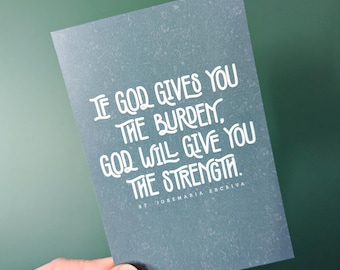 IF GOD GIVES YOU
THE BURDEN,
GOD WILL GIVE YOU
THE STRENGTH.
ST. JOSEMARIA ESCRIVA